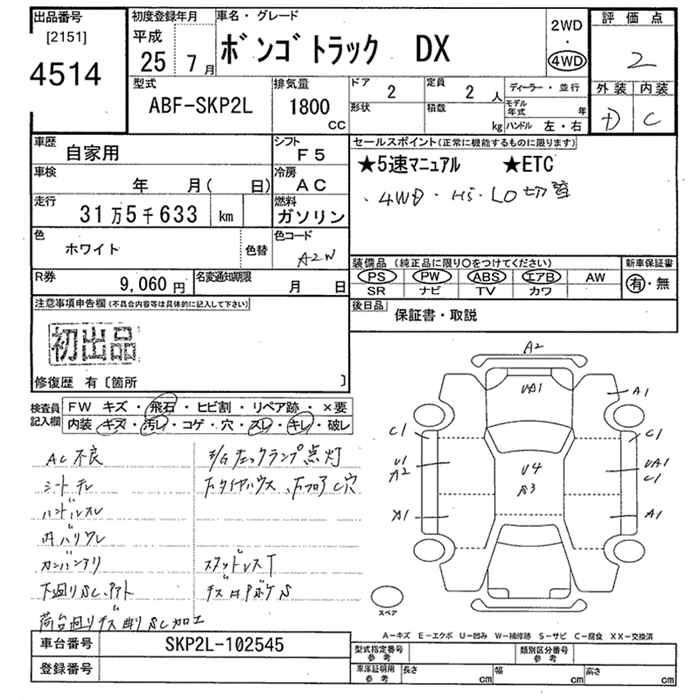 出品番号
[2151]
4514
初度登録年月
平成
25年 7月
車名・グレード
ボンゴトラック DX
2WD
・
4WD
評価点
2
外装 内装
D C
型式
ABF-SKP2L
排気量
1800
CC
ドア
2
定員
2 人
形状
積数
kg
ディーラー・並行
モデル年式 年
ハンドル 左・右
車歴
自家用
シフト
F5
車検
年 月( 日)
冷房
AC
走行
31万5千633 km
燃料
ガソリン
色
ホワイト
色替
色コード
A2W
セールスポイント(正常に機能するものに限ります)
★5速マニュアル ★ETC
・4WD・Hi・LO切替
装備品 (純正品に限り○をつけてください)
PS PW ABS エアB AW
SR ナビ TV カワ
新車保証書
有・無
後日品
保証書・取説
R券
9,060円
名変通知期限
月 日
注意事項申告欄(不具合内容等は具体的に記入して下さい)
初出品
修復歴 有〔箇所 〕
検査員記入欄
FW キズ・飛石・ヒビ割・リペア跡・×要
内装・キズ・汚レ・コゲ・穴・スレ・キレ・破レ
AC不良
シートテレ
ハンドルスレ
内ハリワレ
カンバンアリ
下廻りSC,アト
荷台廻りキズ凹りSC加工
E/Gチェックランプ点灯
スタッドレスT
A2
UA1
A1
C1
C1
U1
A2
U4
A3
UA1
C1
A1
A1
スペア
A-キズ E-エクボ U-凹み W-補修跡 S-サビ C-腐食 XX-交換済
車台番号
SKP2L-102545
登録番号
型式指定番号
参考
類別区分番号
参考
車庫証明用
参考
長さ cm
幅 cm
高さ cm